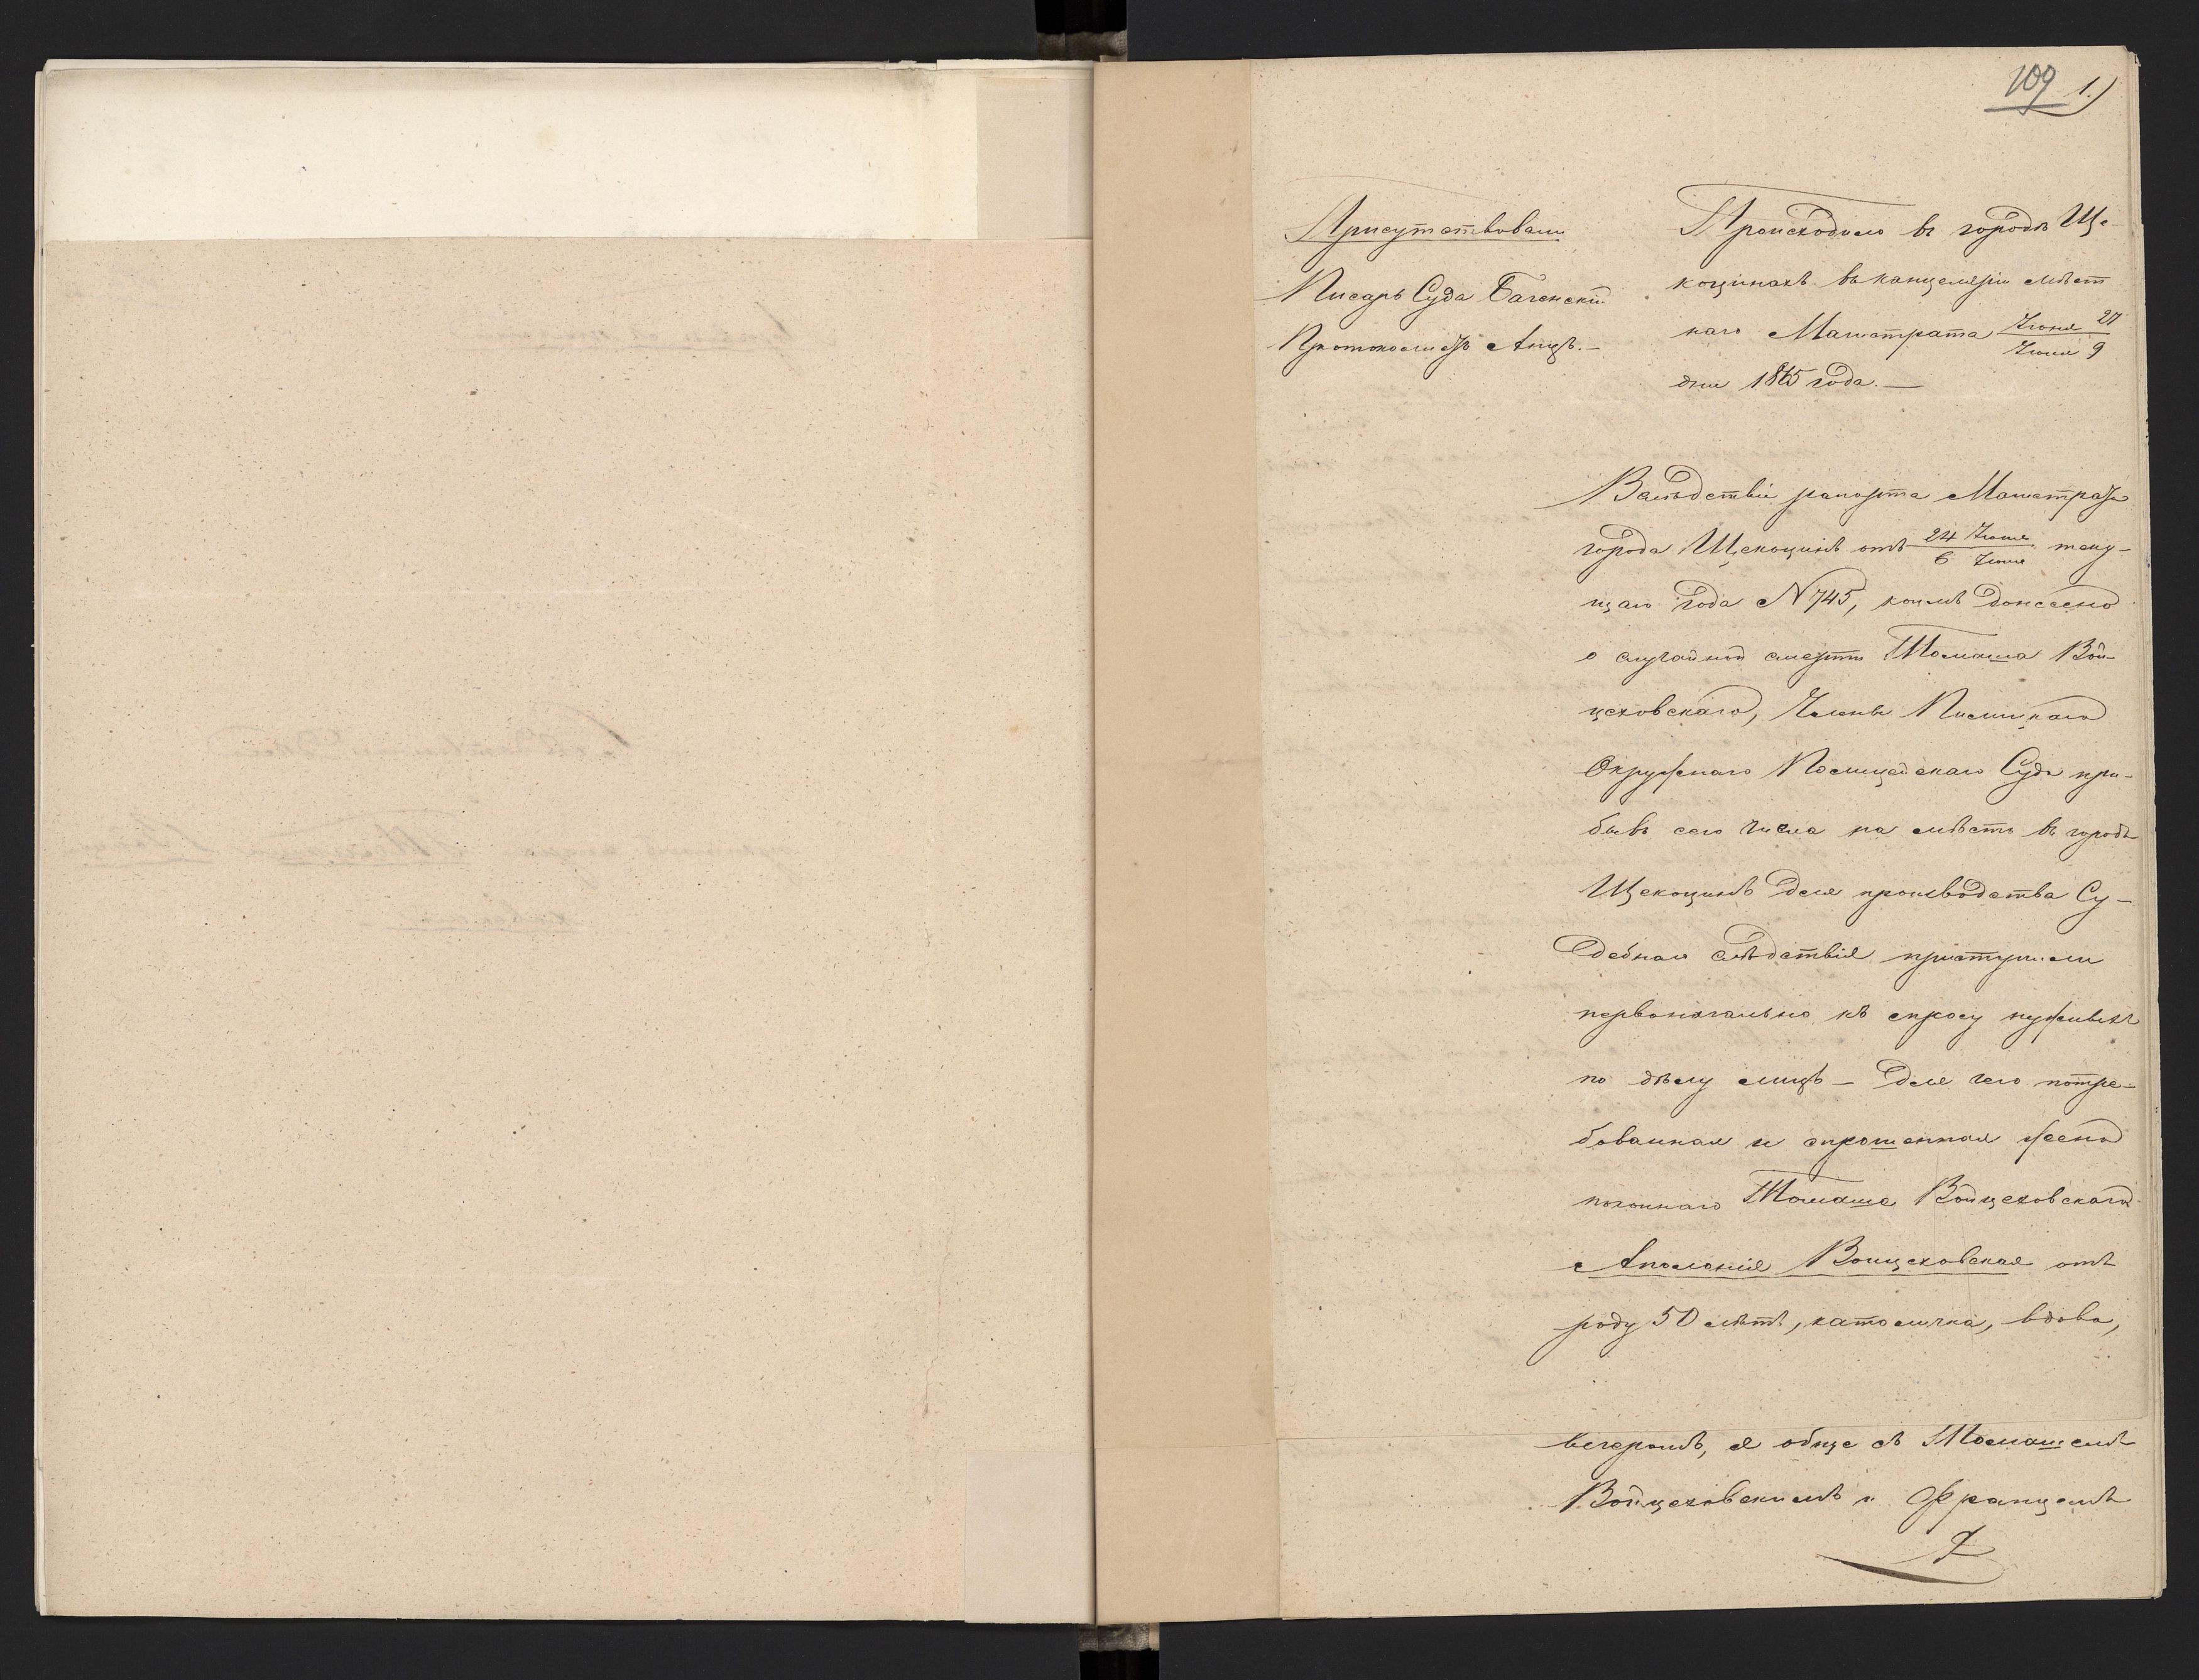 109 1.)
Присутствовали
Писарь Суда Баченскій
Протоколистъ Анцъ. —
Происходило въ городѣ Ще-
коцинахъ въ канцеляріи мѣст
наго Магистрата Іюня 27
Іюля 9
дня 1865 года. —
Вслѣдствіи рапорта Магистрата
города Щекоцинъ отъ 24 Іюня / 6 Іюля теку-
щаго года N 745, коимъ донесено
о случайной смерти Томаша Вой-
цеховскаго, Члены Пилицкаго
Окружнаго Полицейскаго Суда при-
бывъ сего числа на мѣсто въ городъ
Щекоцинъ для производства Су-
дебнаго слѣдствія приступили
первоначально къ спросу нужныхъ
по дѣлу лицъ — для чего потре-
бованная и спрошенная жена
покойнаго Томаша Войцеховскаго
Аполонія Войцеховская отъ
роду 50 лѣтъ, католичка, вдова,
вечеромъ, я обще съ Томашемъ
Войцеховскимъ и Францемъ